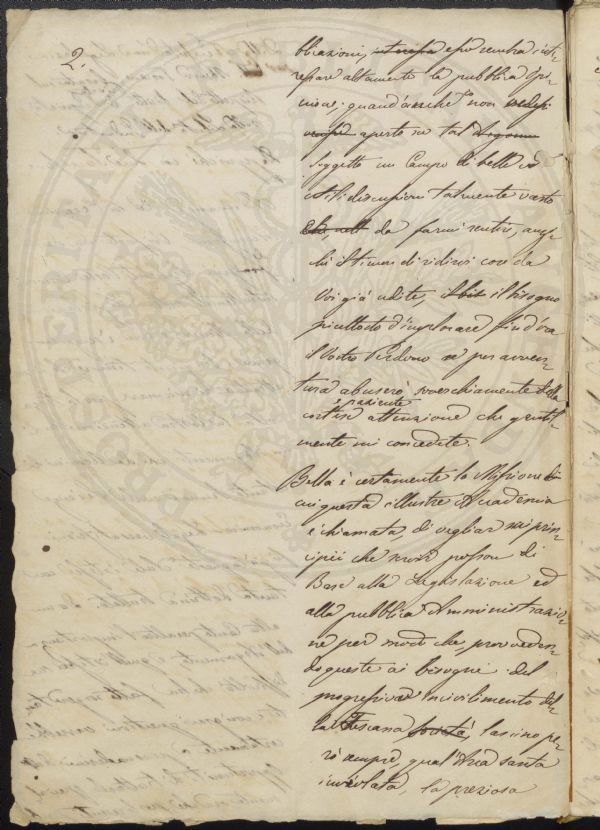 2.
blicazioni, e può sembra inte-
ressare altamente la pubblica opi-
nione; quand'anche non
aperto in tal
Soggetto un Campo di belle ed
utili discussioni talmente vasto
da farmi sentire, anzi-
chè il timore di ridirvi cose da
Voi già udite, il bisogno
piuttosto d'implorare fin d'ora
il Vostro Perdono se per avven-
tura abuserò soverchiamente della
cortese e paziente attenzione che gentil-
mente mi concedete.
Bella è certamente la Missione di
cui questa illustre Accademia
è chiamata, di vegliar sui prin-
cipii che servir posson di
Base alla Legislazione ed
alla pubblica Amministrazio-
ne per modo che, provveden-
do queste ai bisogni del
progressivo Incivilimento del-
la Toscana Società, lascino pe-
rò sempre, qual'Ara santa
inviolata, la preziosa